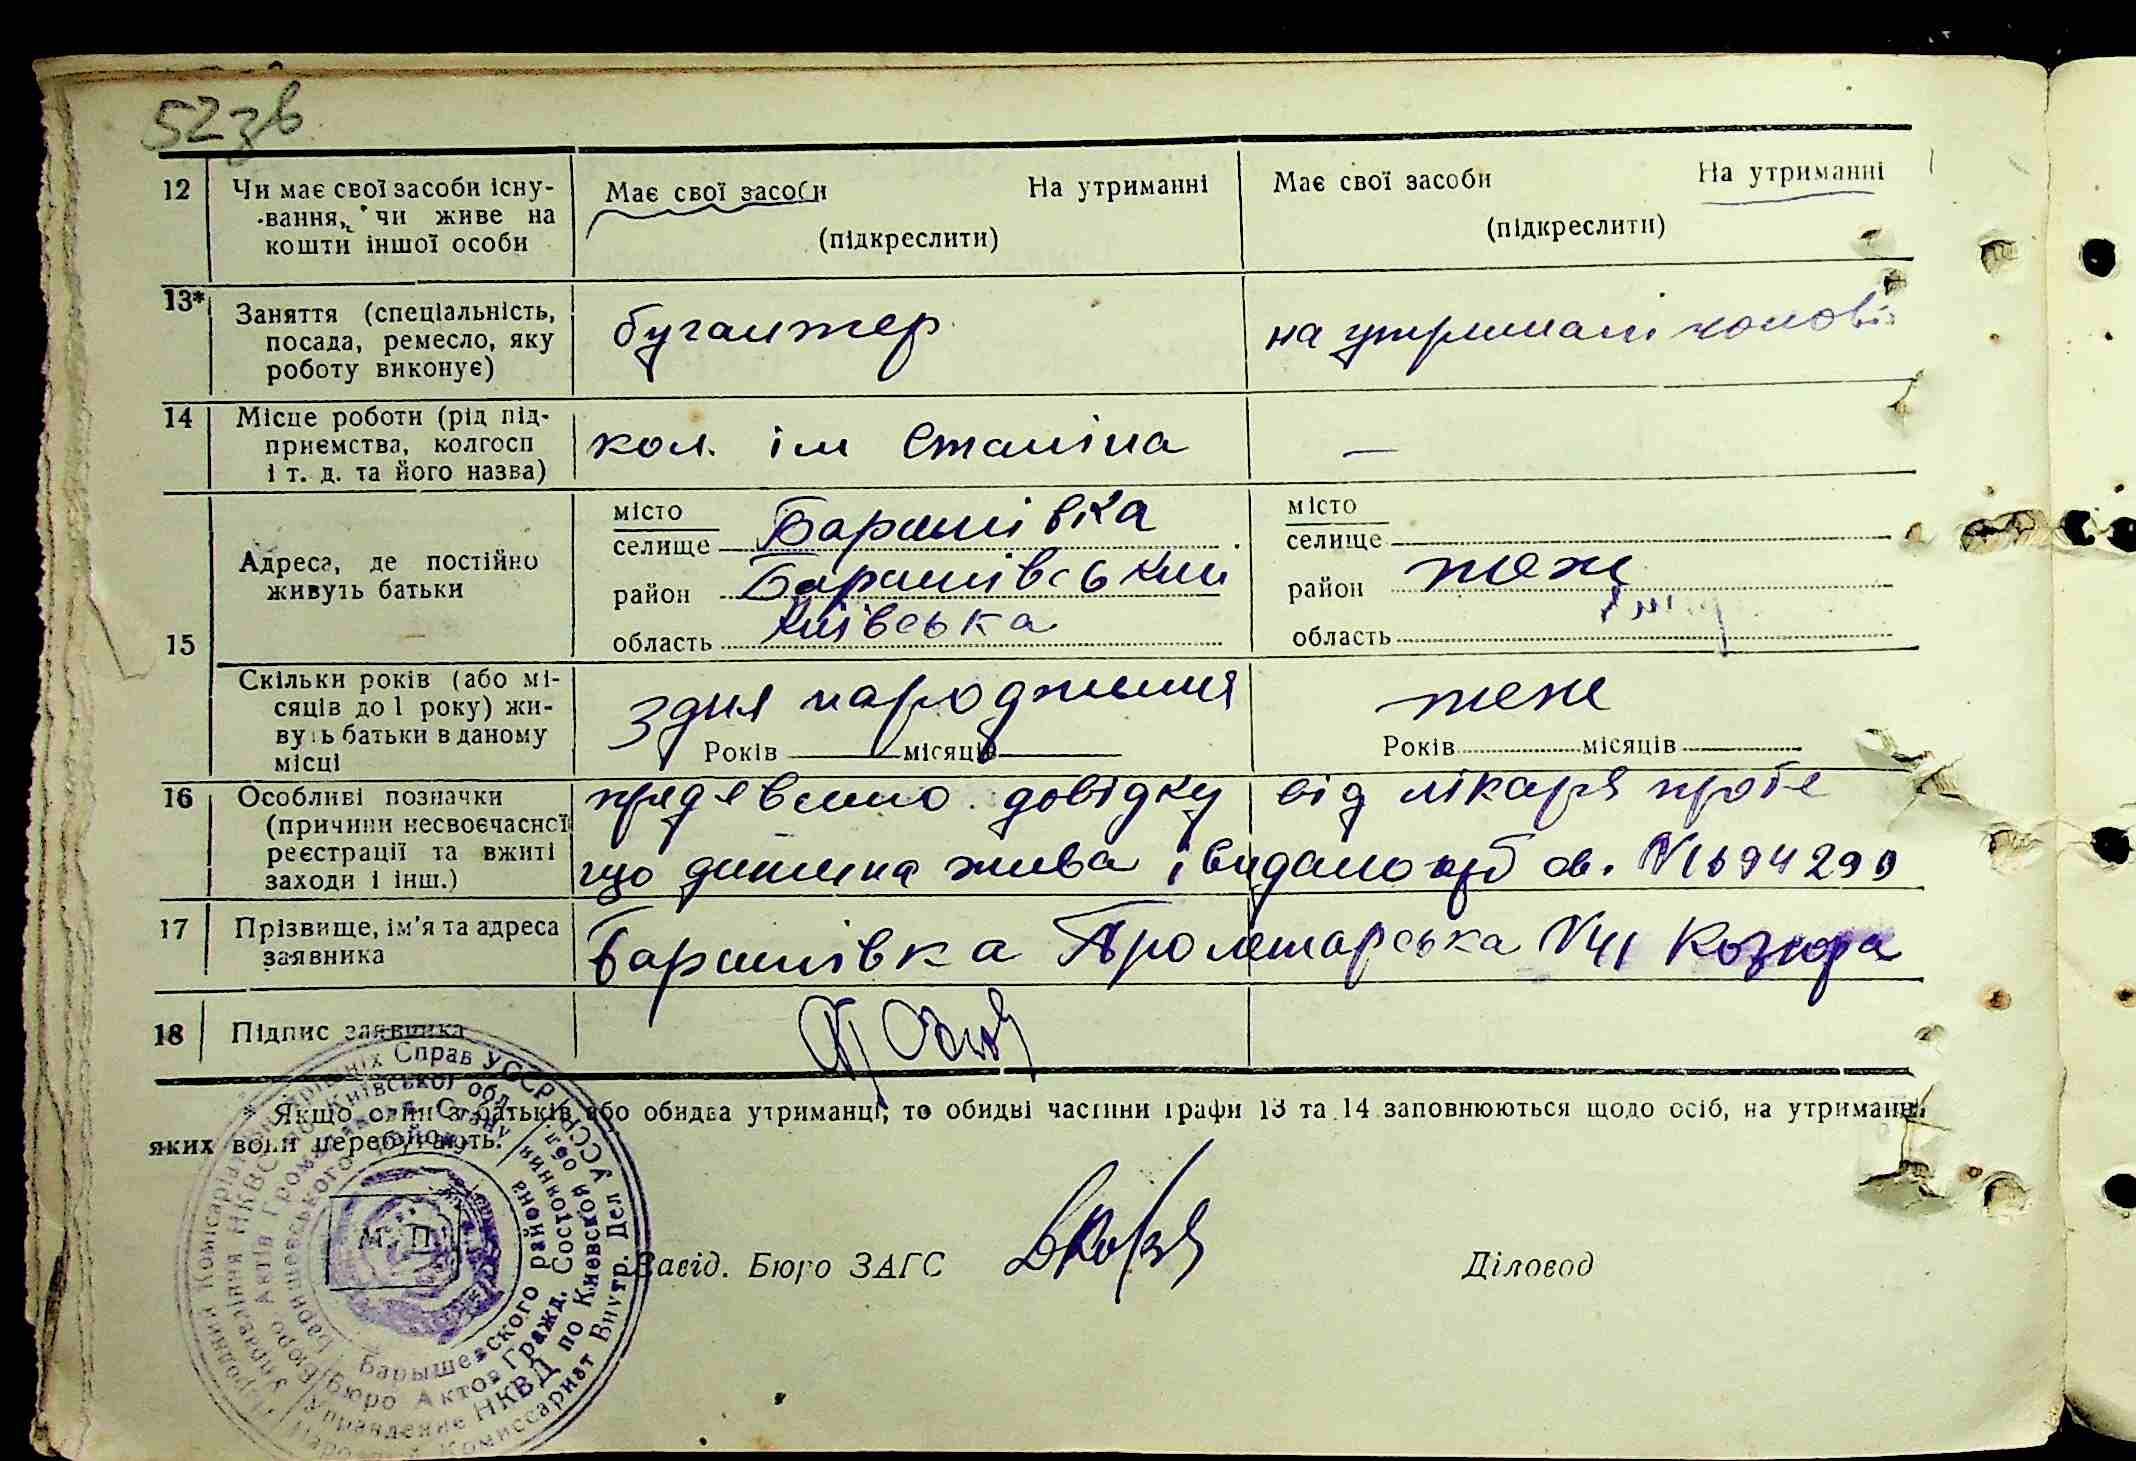 52зв
12 Чи має свої засоби існу- Має свої засоби На утриманні Має свої засоби На утриманні
вання, чи живе на
кошти іншої особи (підкреслити) (підкреслити)
13* Заняття (спеціальність,
посада, ремесло, яку бугалтер на утримані чолові
роботу виконує)
14 Місце роботи (рід під-
приємства, колгосп кол. ім Сталіна —
і т. д. та його назва)
15 Адреса, де постійно живуть батьки
місто Баришівка місто
селище селище
район Баришівський район теж
область Київська область
Скільки років (або мі-
сяців до 1 року) жи- з дня народження теж
вуть батьки в даному Років місяців Років місяців
місці
16 Особливі позначки предявлено довідку від лікаря проте
(причини несвоєчасної
реєстрації та вжиті що дитина жива і видано св. №
заходи і інш.)
17 Прізвище, ім'я та адреса
заявника Баришівка Пролетарська №41 Козюра
18 Підпис заявника
* Якщо один з батьків або обидва утриманці, то обидві частини графи 13 та 14 заповнюються щодо осіб, на утриманні
яких вони перебувають.
М. П.
Завід. Бюро ЗАГС Діловод
Народний Комісаріат Внутрішніх Справ УССР
Управління НКВС Київської обл.
Бюро Актів Громадянськ. Стану
Баришевського району
Барышевского района
Бюро Актов Гражд. Состояния
Управление НКВД по Киевской обл.
Народный Комиссариат Внутр. Дел УССР